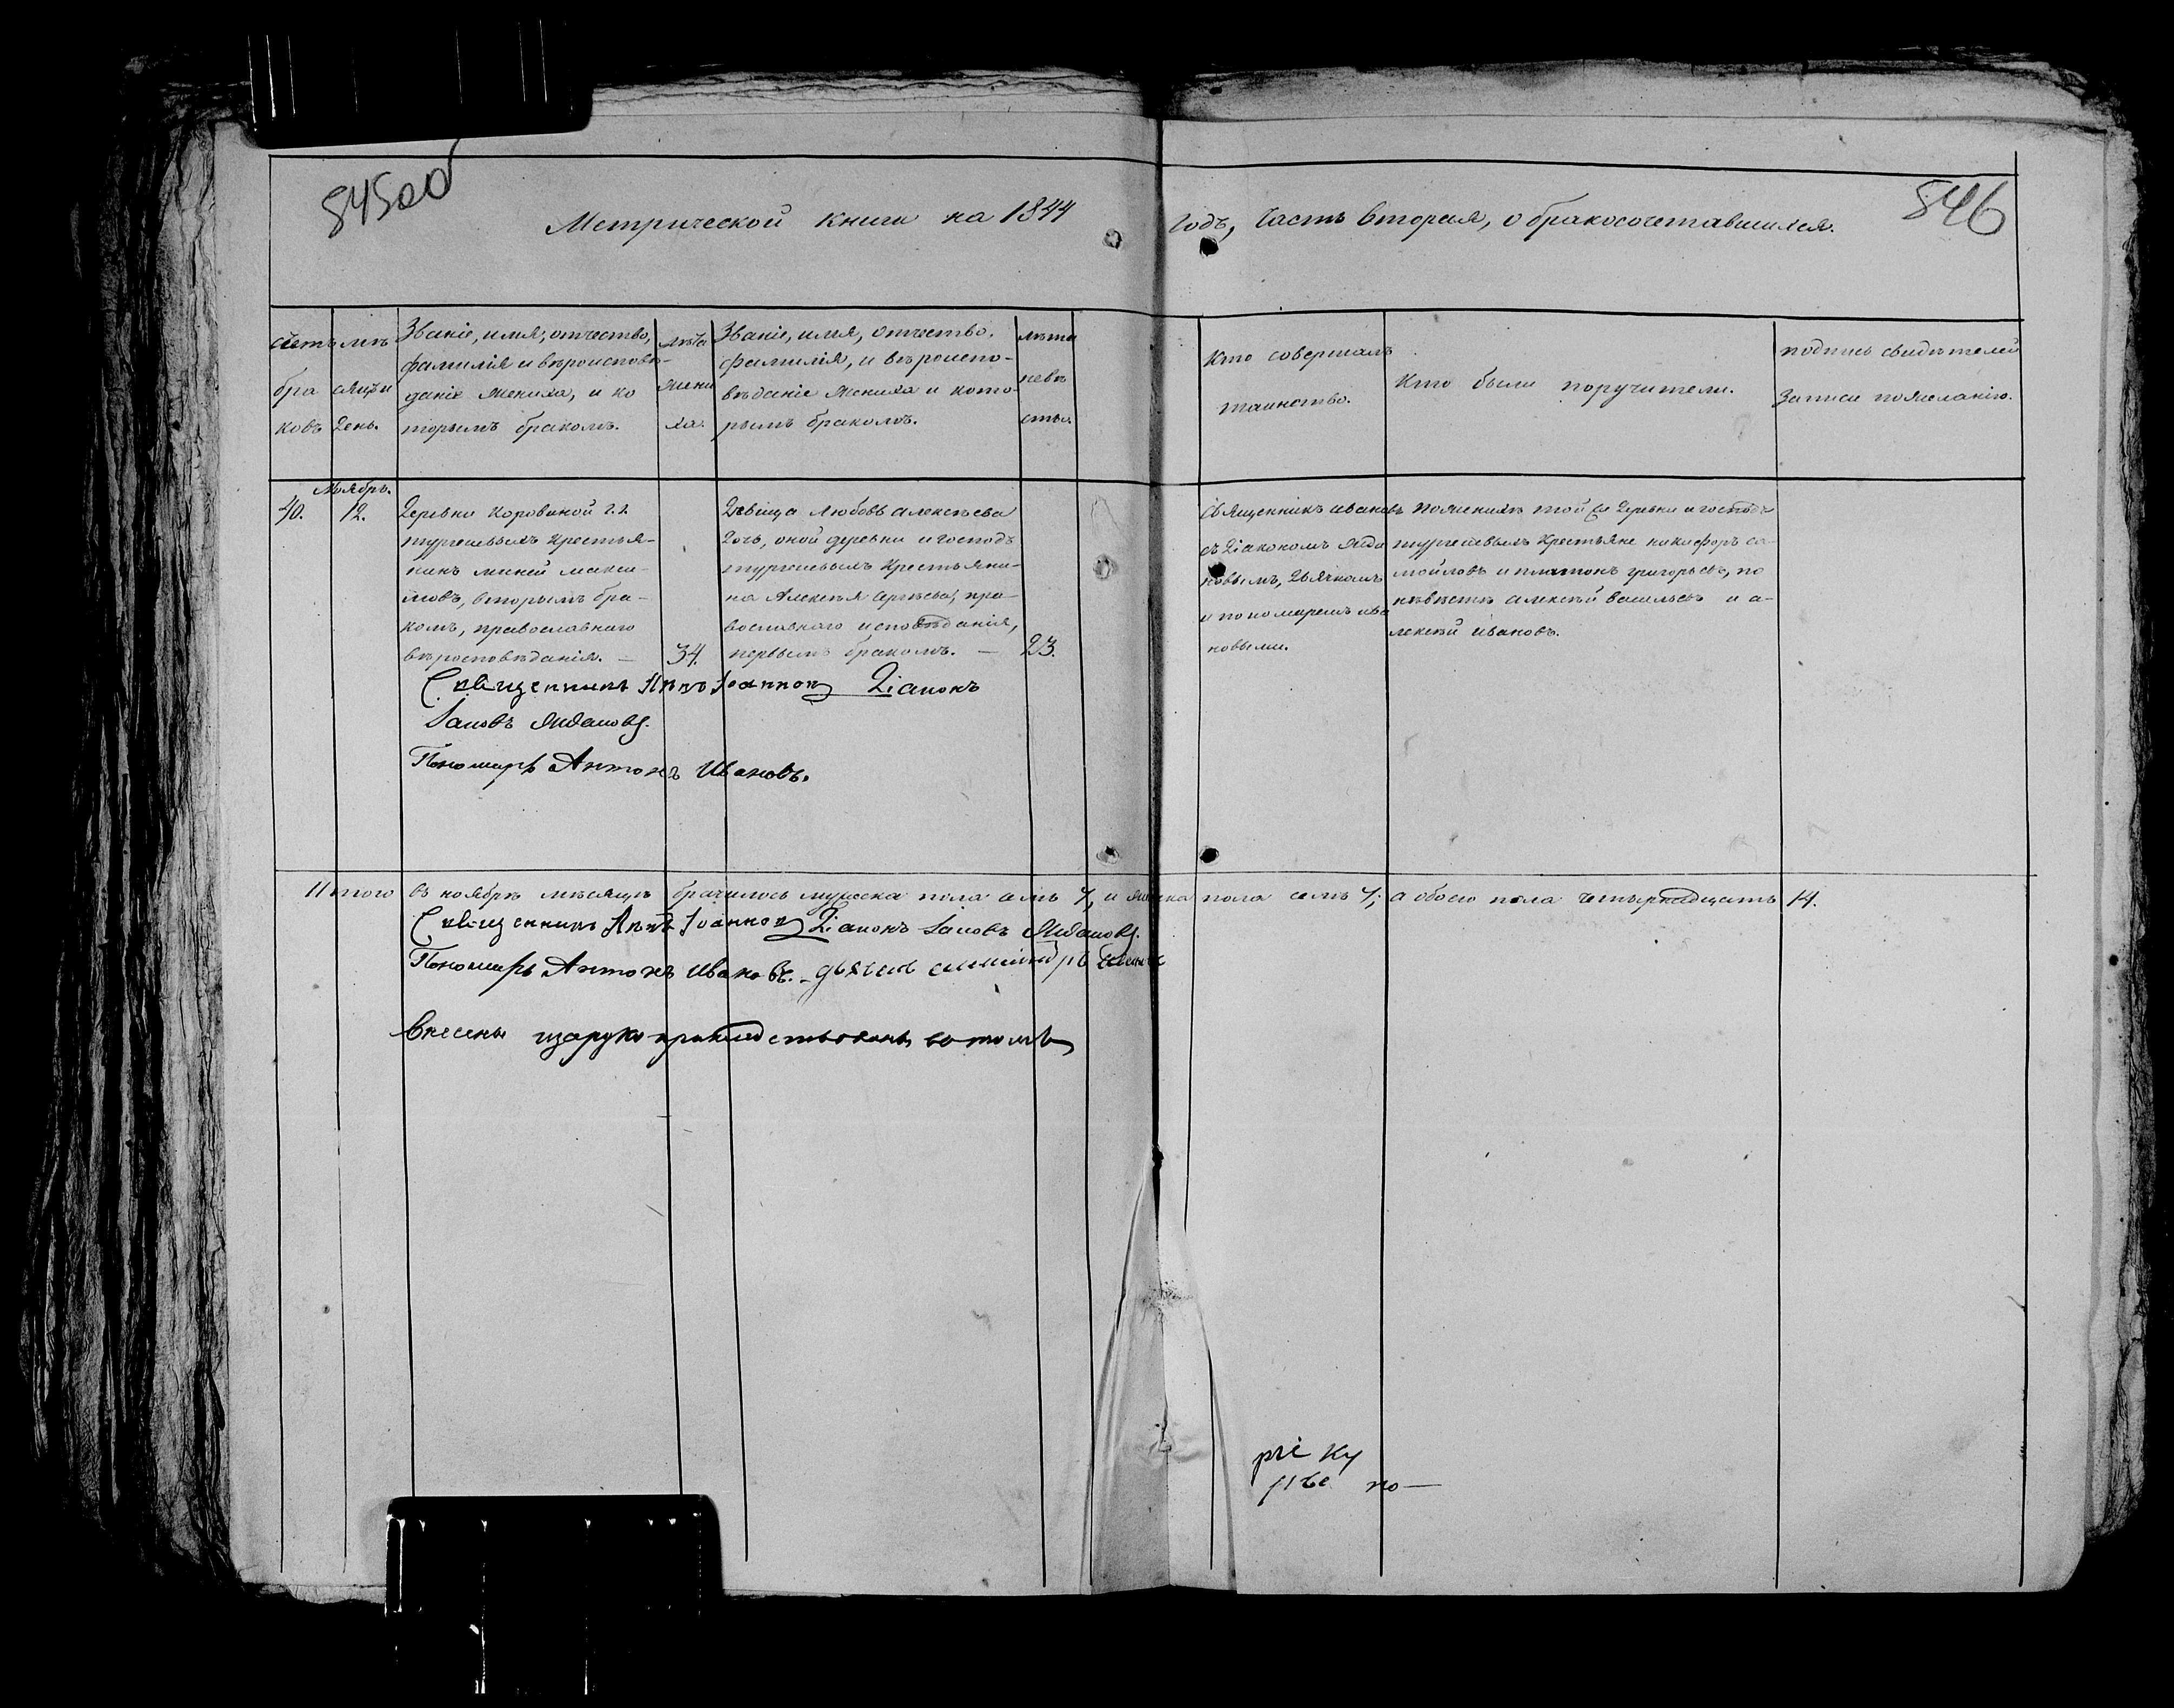 845об
846
Метрической книги на 1844 годъ, часть вторая, о бракосочетавшихся.
счетъ
бра
ковъ
мѣ
сяцъ и
день.
Званіе, имя, отчество,
фамилія и вѣроисповѣ-
даніе жениха, и ко
торымъ бракомъ.
лѣта
жени
ха.
Званіе, имя, отчество.
фамилія, и вѣроиспо-
вѣданіе жениха и кото-
рымъ бракомъ.
лѣта
невѣ
сты.
Кто совершалъ
таинство.
Кто были поручители.
подпись свидѣтелей
записи по желанію.
Ноябрь.
40.
12.
Деревни Коровиной г.г.
тургеневыхъ крестья-
нинъ миней макси-
мовъ, вторымъ бра-
комъ, православнаго
вѣроисповѣданія. —
34.
Дѣвица любовь алексѣева
дочь, оной деревни и господъ
тургеневыхъ крестьяни-
на Алексѣя сергѣева, пра-
вославнаго исповѣданія,
первымъ бракомъ. —
23.
Священникъ ивановъ
съ Діакономъ жда
новымъ, дьячкомъ
и пономаремъ ива
новыми.
по женихѣ той же деревни и господъ
тургеневыхъ крестьяне никифоръ са-
мойловъ и платонъ григорьевъ, по
невѣстѣ алексѣй васильевъ и а-
лексѣй ивановъ.
Священникъ Іоанновъ Діаконъ
Іаковъ Ждановъ.
Пономарь Антонъ Ивановъ.
Итого въ ноябрѣ мѣсяцѣ брачилось мужеска пола семь 7, и женска пола семь 7; а обоего пола четырнадцать 14.
Священникъ Іоанновъ Діаконъ Іаковъ Ждановъ.
Пономарь Антонъ Ивановъ. дьячекъ